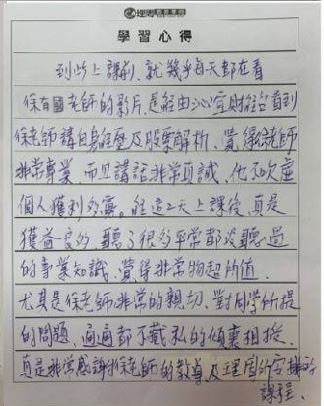 理周教育學苑
學習心得
到此上課前,就幾乎每天都在看
徐有國老師的影片,是經由沁宜財經台看到
徐老師講自身經歷及股票解析,覺得徐老師
非常專業,而且講話非常真誠,也不吹虛
個人獲利多寡。經這2天上課後,真是
獲益良多 聽了很多平常都沒聽過
的專業知識,覺得非常物超所值.
尤其是徐老師非常的親切,對同學所提
的問題,通通都不藏私的傾囊相授.
真是非常感謝徐老師的教導及理周所安排的
課程.